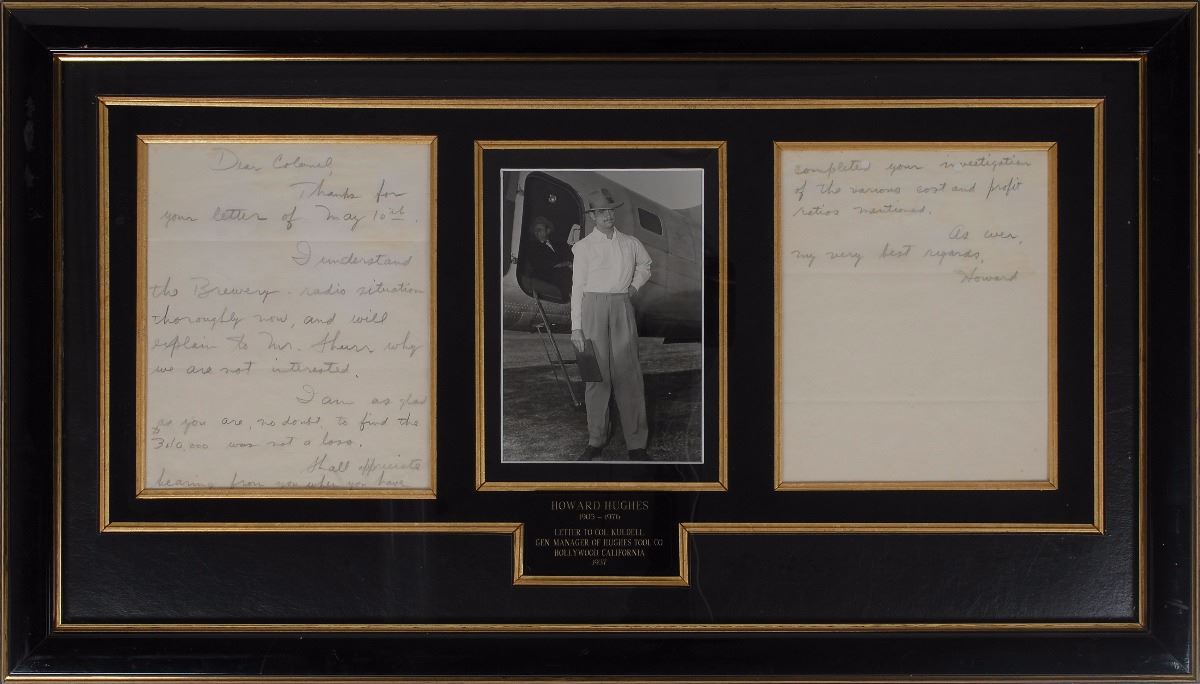 Dear Colonel,
Thanks for
your letter of May 10th.
I understand
the Brewery - radio situation
thoroughly now, and will
explain to Mr. why
we are not interested.
I am as glad
as you are, no doubt, to find the
was not a loss.
Shall appreciate
hearing from you when you have
HOWARD HUGHES
1905 - 1976
LETTER TO COL. KULDELL
GEN MANAGER OF HUGHES TOOL CO
HOLLYWOOD CALIFORNIA
1937
completed your investigation
of the various cost and profit
ratios mentioned.
As ever,
my very best regards,
Howard